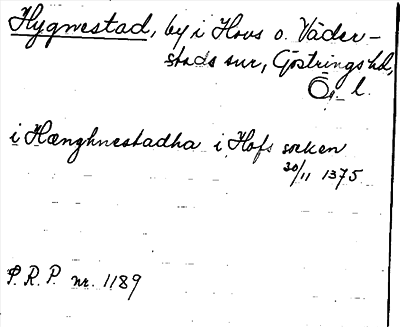 Hygnestad, by i Hovs o. Väder-
stads snr, Göstrings hd,
Ög. l.
i Hænghnestadha i Hofs socken
30/11 1375
P.R.P. nr. 1189